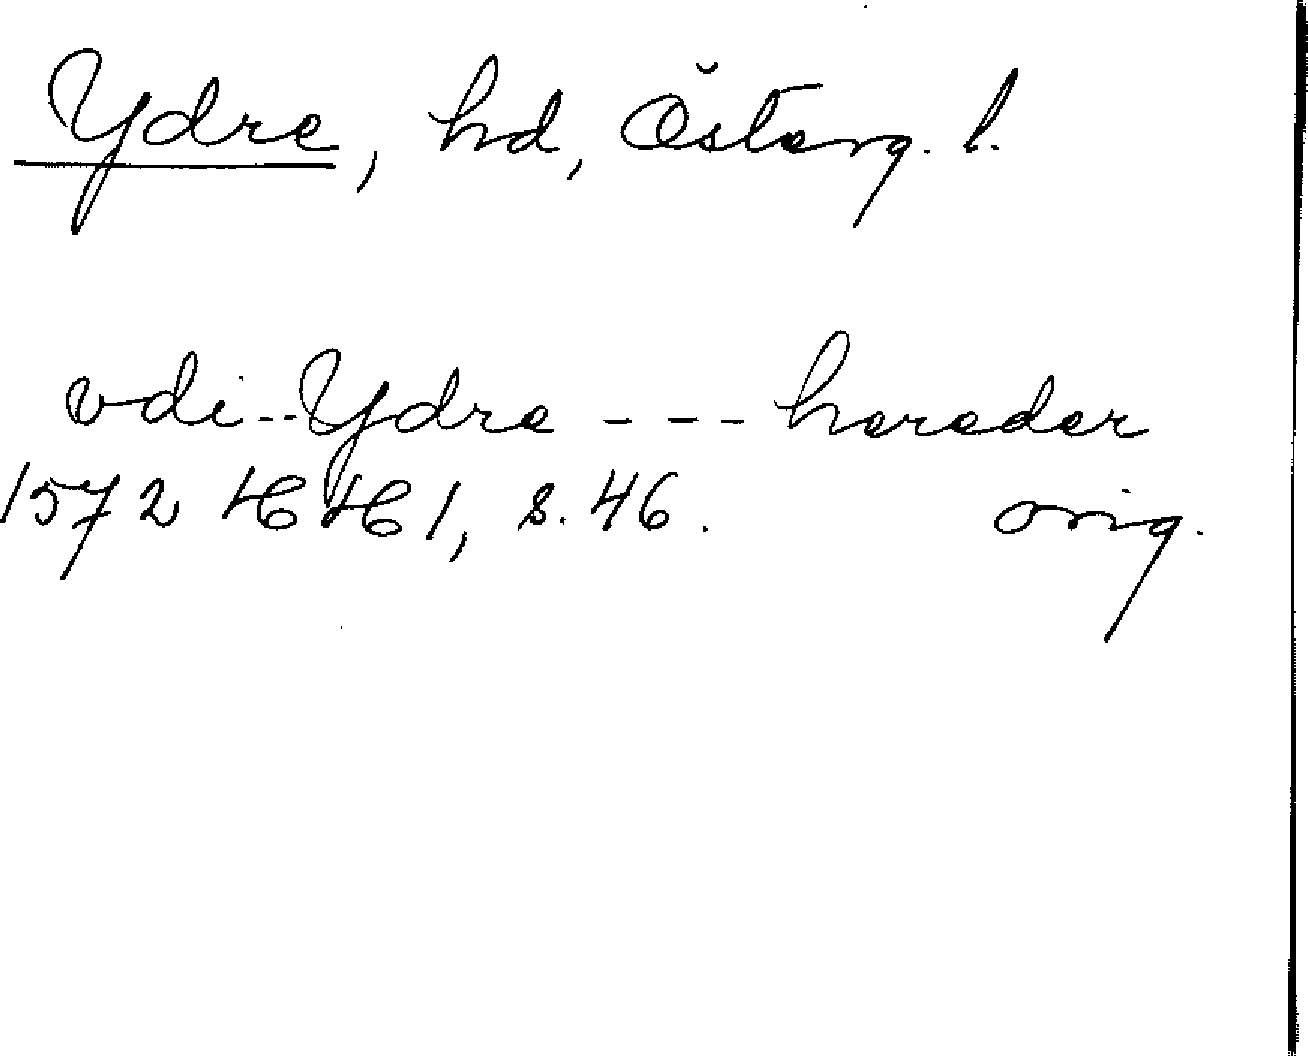 Ydre, hd, Österg. l.
vdi -- Ydre --- hereder
1572 HH 1, s. 46. orig.